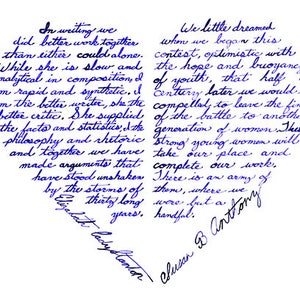 In writing we
did better work together
than either could alone.
While she is slow and
nalytical in composition, I
m rapid and synthetic. I
m the better writer, she the
better critic. She supplied
the facts and statistics, I the
philosophy and rhetoric
and together we have
made arguments that
have stood unshaken
by the storms of
thirty long
years.
Elizabeth Cady Stanton
We little dreamed
when we began this
contest, optimistic with
the hope and buoyanc
of youth, that half
century later we would
compelled to leave the fin
of the battle to anothe
generation of women. The
strong young women will
take our place and
complete our work.
There is an army of
them, where we
were but a
handful.
Susan B Anthony